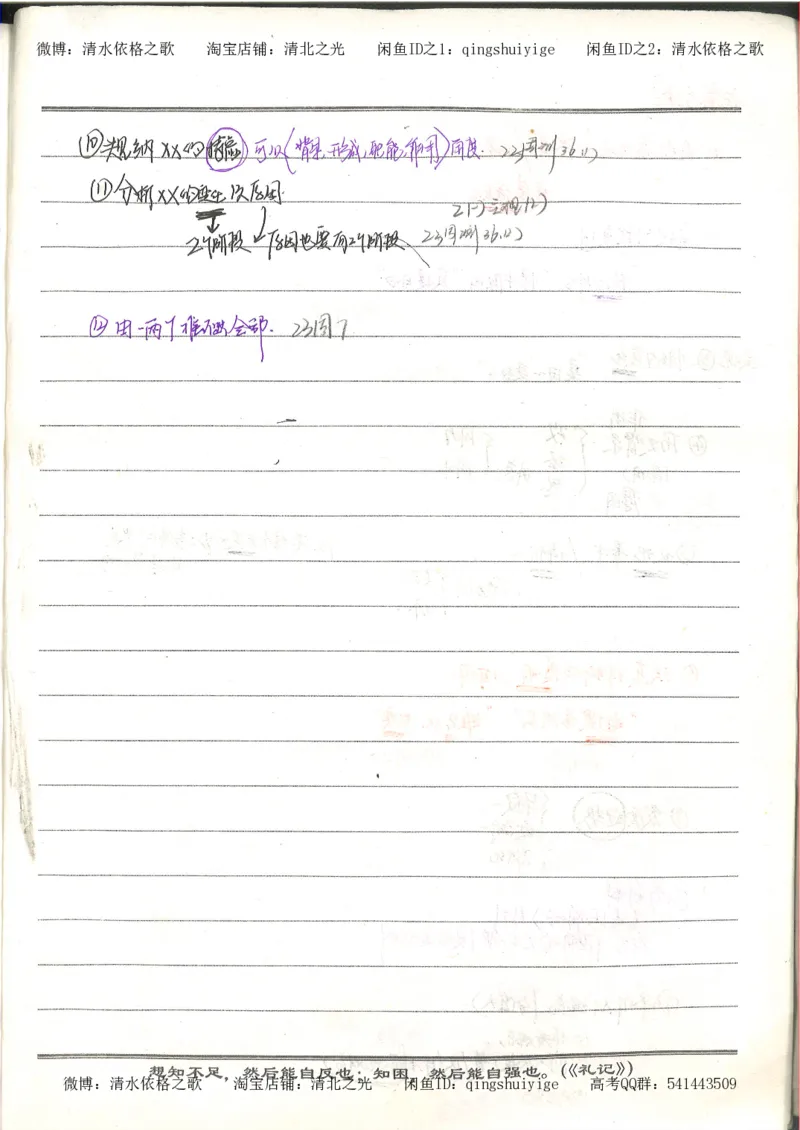 微博：清水依格之歌 淘宝店铺：清北之光 闲鱼ID之1：qingshuiyige 闲鱼ID之2：清水依格之歌
⑩ 归纳XX的特点 可以（背景,形成,职能,作用）角度. 22周测36.(1)
⑪ 分析XX的 原因.
21(一) (2)
2个阶段 原因也要有2个阶段 23周测36.(1)
⑫ 由一两个推不出全部. 23周7
想知不足，然后能自反也；知困，然后能自强也。(《礼记》)
微博：清水依格之歌 淘宝店铺：清北之光 闲鱼ID：qingshuiyige 高考QQ群：541443509